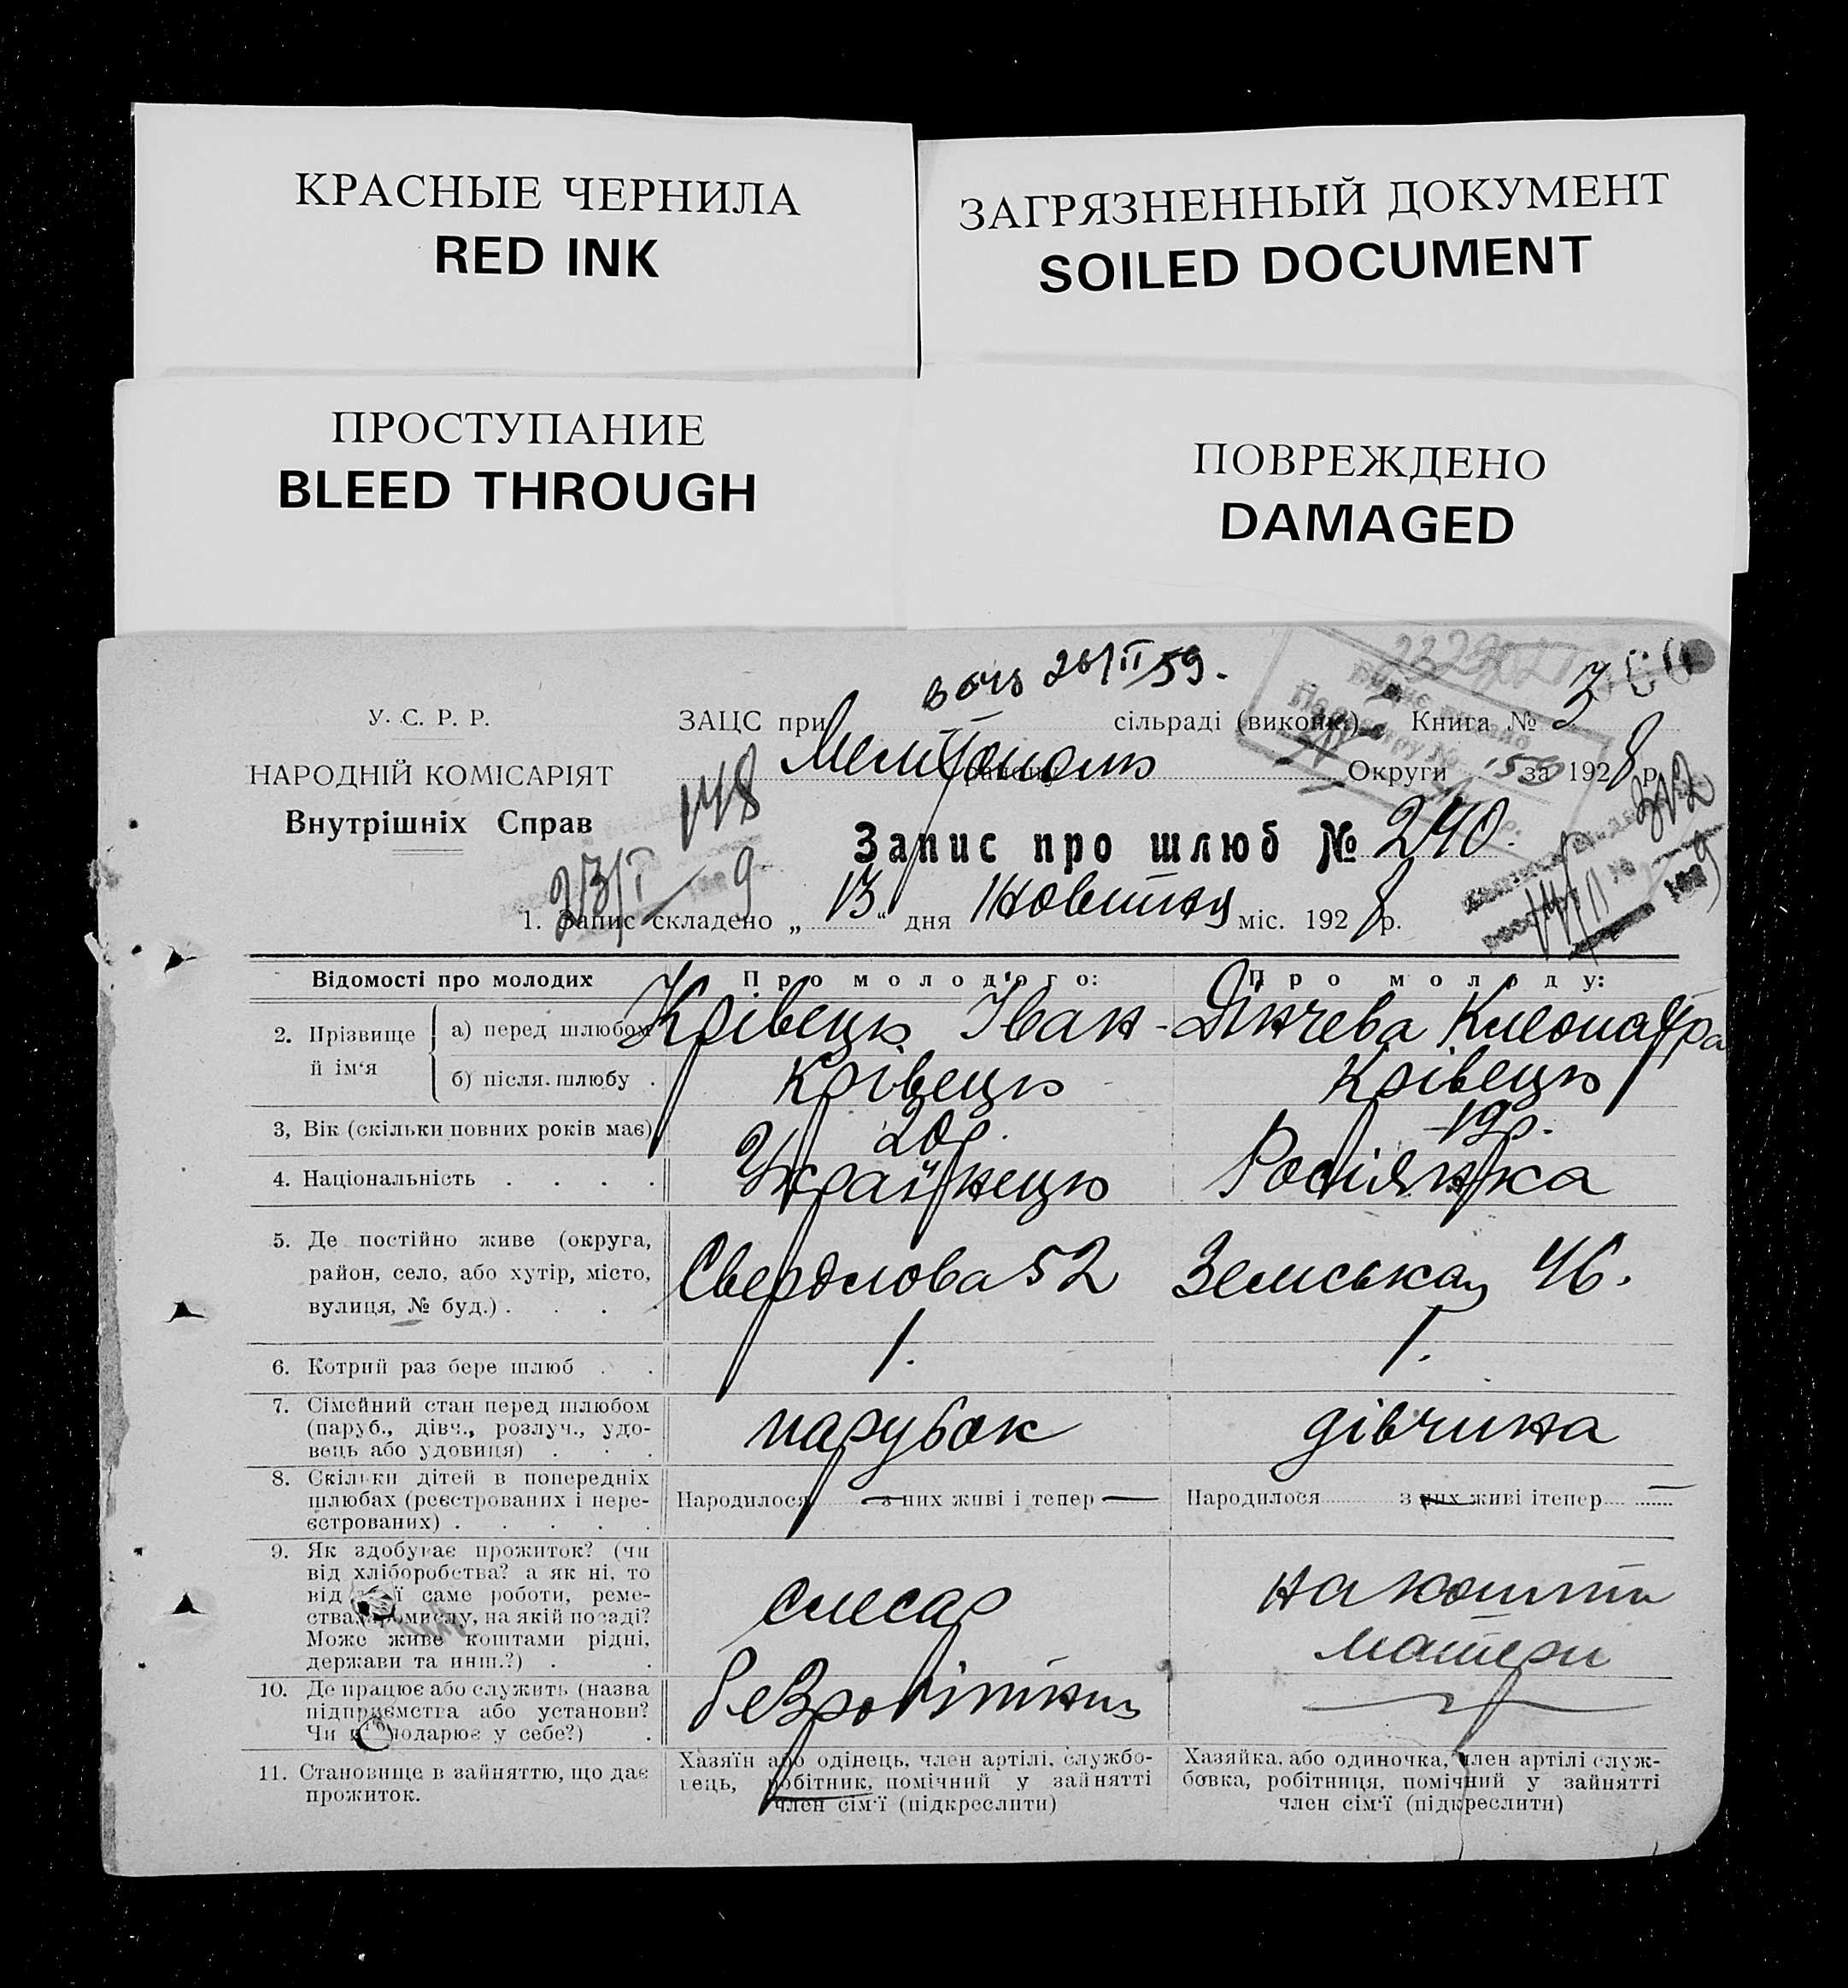 КРАСНЫЕ ЧЕРНИЛА
RED INK
ЗАГРЯЗНЕННЫЙ ДОКУМЕНТ
SOILED DOCUMENT
ПРОСТУПАНИЕ
BLEED THROUGH
ПОВРЕЖДЕНО
DAMAGED
26/II 59.
У. С. Р. Р.
НАРОДНІЙ КОМІСАРІЯТ
Внутрішніх Справ
148
23/I 9
ЗАЦС при сільраді (виконк.) Книга № 3
Мелітополь Округи за 1928 р.
Запис про шлюб № 240.
1. Запис складено „13“ дня Жовтня міс. 1928 р.
Відомості про молодих Про молодого: Про молоду:
2. Прізвище й ім‘я а) перед шлюбом Крівець Іван Дякчева Клеопатра
б) після шлюбу . Крівець Крівець
3, Вік (скільки повних років має) 20р. 19р.
4. Національність . . . . Українець Росіянка
5. Де постійно живе (округа,
район, село, або хутір, місто,
вулиця, № буд.) . . . . Свердлова 52 Земська 46.
6. Котрий раз бере шлюб . . 1. 1.
7. Сімейний стан перед шлюбом
(паруб., дівч., розлуч., удо-
вець або удовиця) . . . парубок дівчина
8. Скільки дітей в попередніх
шлюбах (реєстрованих і нере-
єстрованих) . . . . . Народилося — з них живі і тепер — Народилося з них живі ітепер —
9. Як здобуває прожиток? (чи
від хліборобства? а як ні, то
від саме роботи, реме-
ства, промислу, на якій посаді?
Може живе коштами рідні,
держави та инш.?) . . слесар на кошти
матери
10. Де працює або служить (назва
підприємства або установи?
Чи господарює у себе?) .
11. Становище в зайняттю, що дає
прожиток.
Хазяїн або одінець, член артілі, службо-
вець, робітник, помічний у зайнятті
член сім‘ї (підкреслити)
Хазяйка, або одиночка, член артілі служ-
бовка, робітниця, помічний у зайнятті
член сім‘ї (підкреслити)